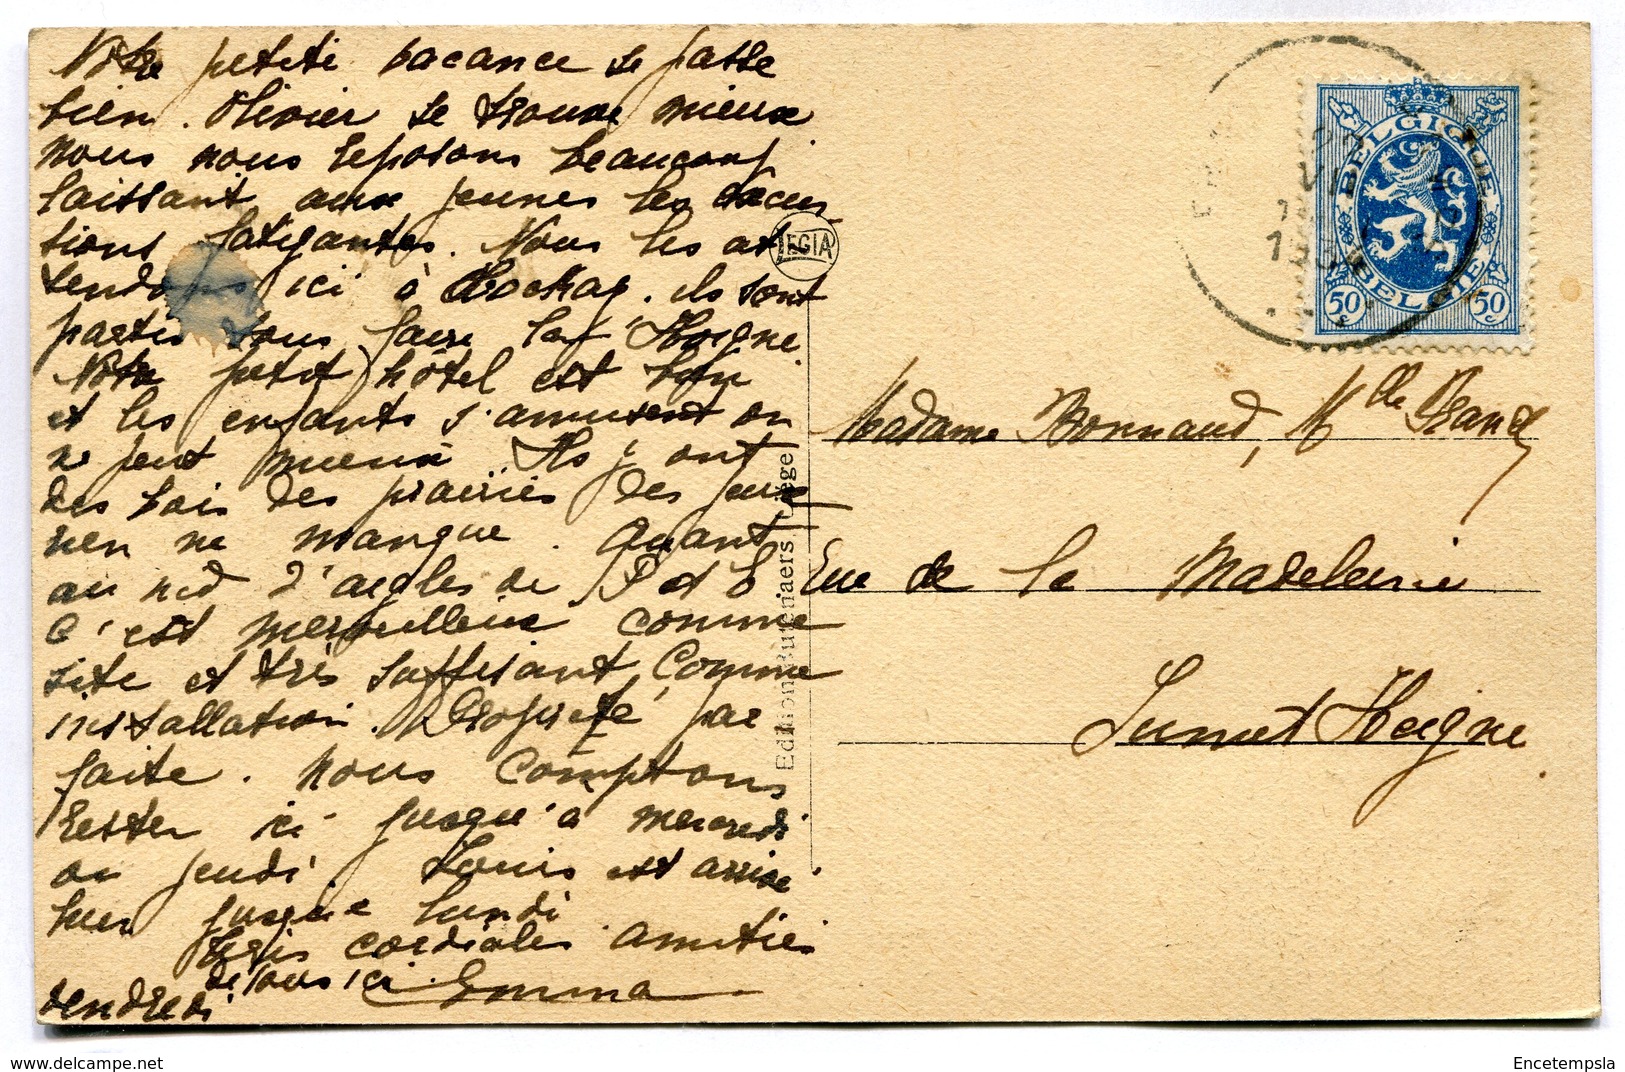 Notre petite vacance se passe
bien. Olivier se trouve mieux
nous nous reposons beaucoup
laissant aux jeunes les excur
sions fatigantes. Nous les at
tendons ici à . ils sont
partis tous faire la Hoegne
Notre petit hôtel est bien
et les enfants s'amusent on
ne peut mieux Ils y ont
des bois des prairies des jeux
rien ne manque. Quant
au nid d'aigles de P et E
c'est merveilleux comme
site et très suffisant comme
installation. Propreté par
faite. Nous comptons
rester ici jusqu'à mercredi
ou jeudi Louis est arrivé
hier jusque lundi
Très cordiales amitiés
de tous ici. Emma
vendredi
LEGIA
Edition Butenaers, Liége
BELGIQUE
BELGIE
50 c
50 c
Madame Bonnaud, Melle
rue de la Madeleine
Jumet Heigne
Encetempsia
delcampe.net